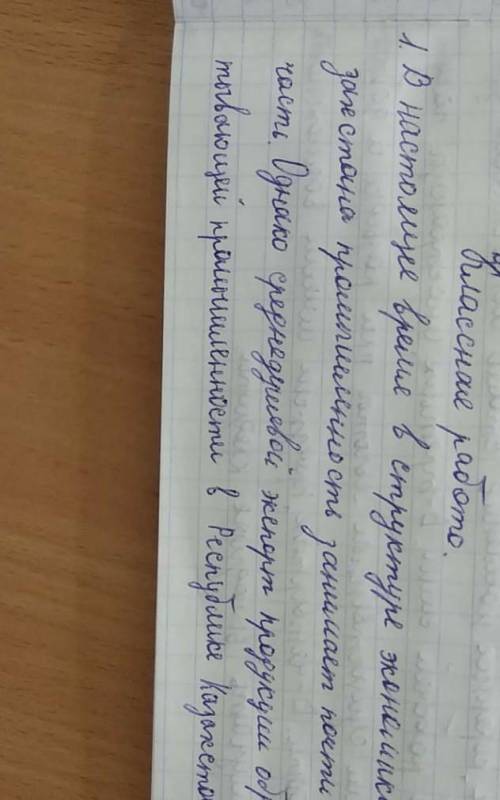 Классная работа.
1. В настоящее время в структуре экономик
захстана промышленность занимает почти
часть. Однако среднедушевой экспорт продукции обр
тывающей промышленности в Республике Казахста